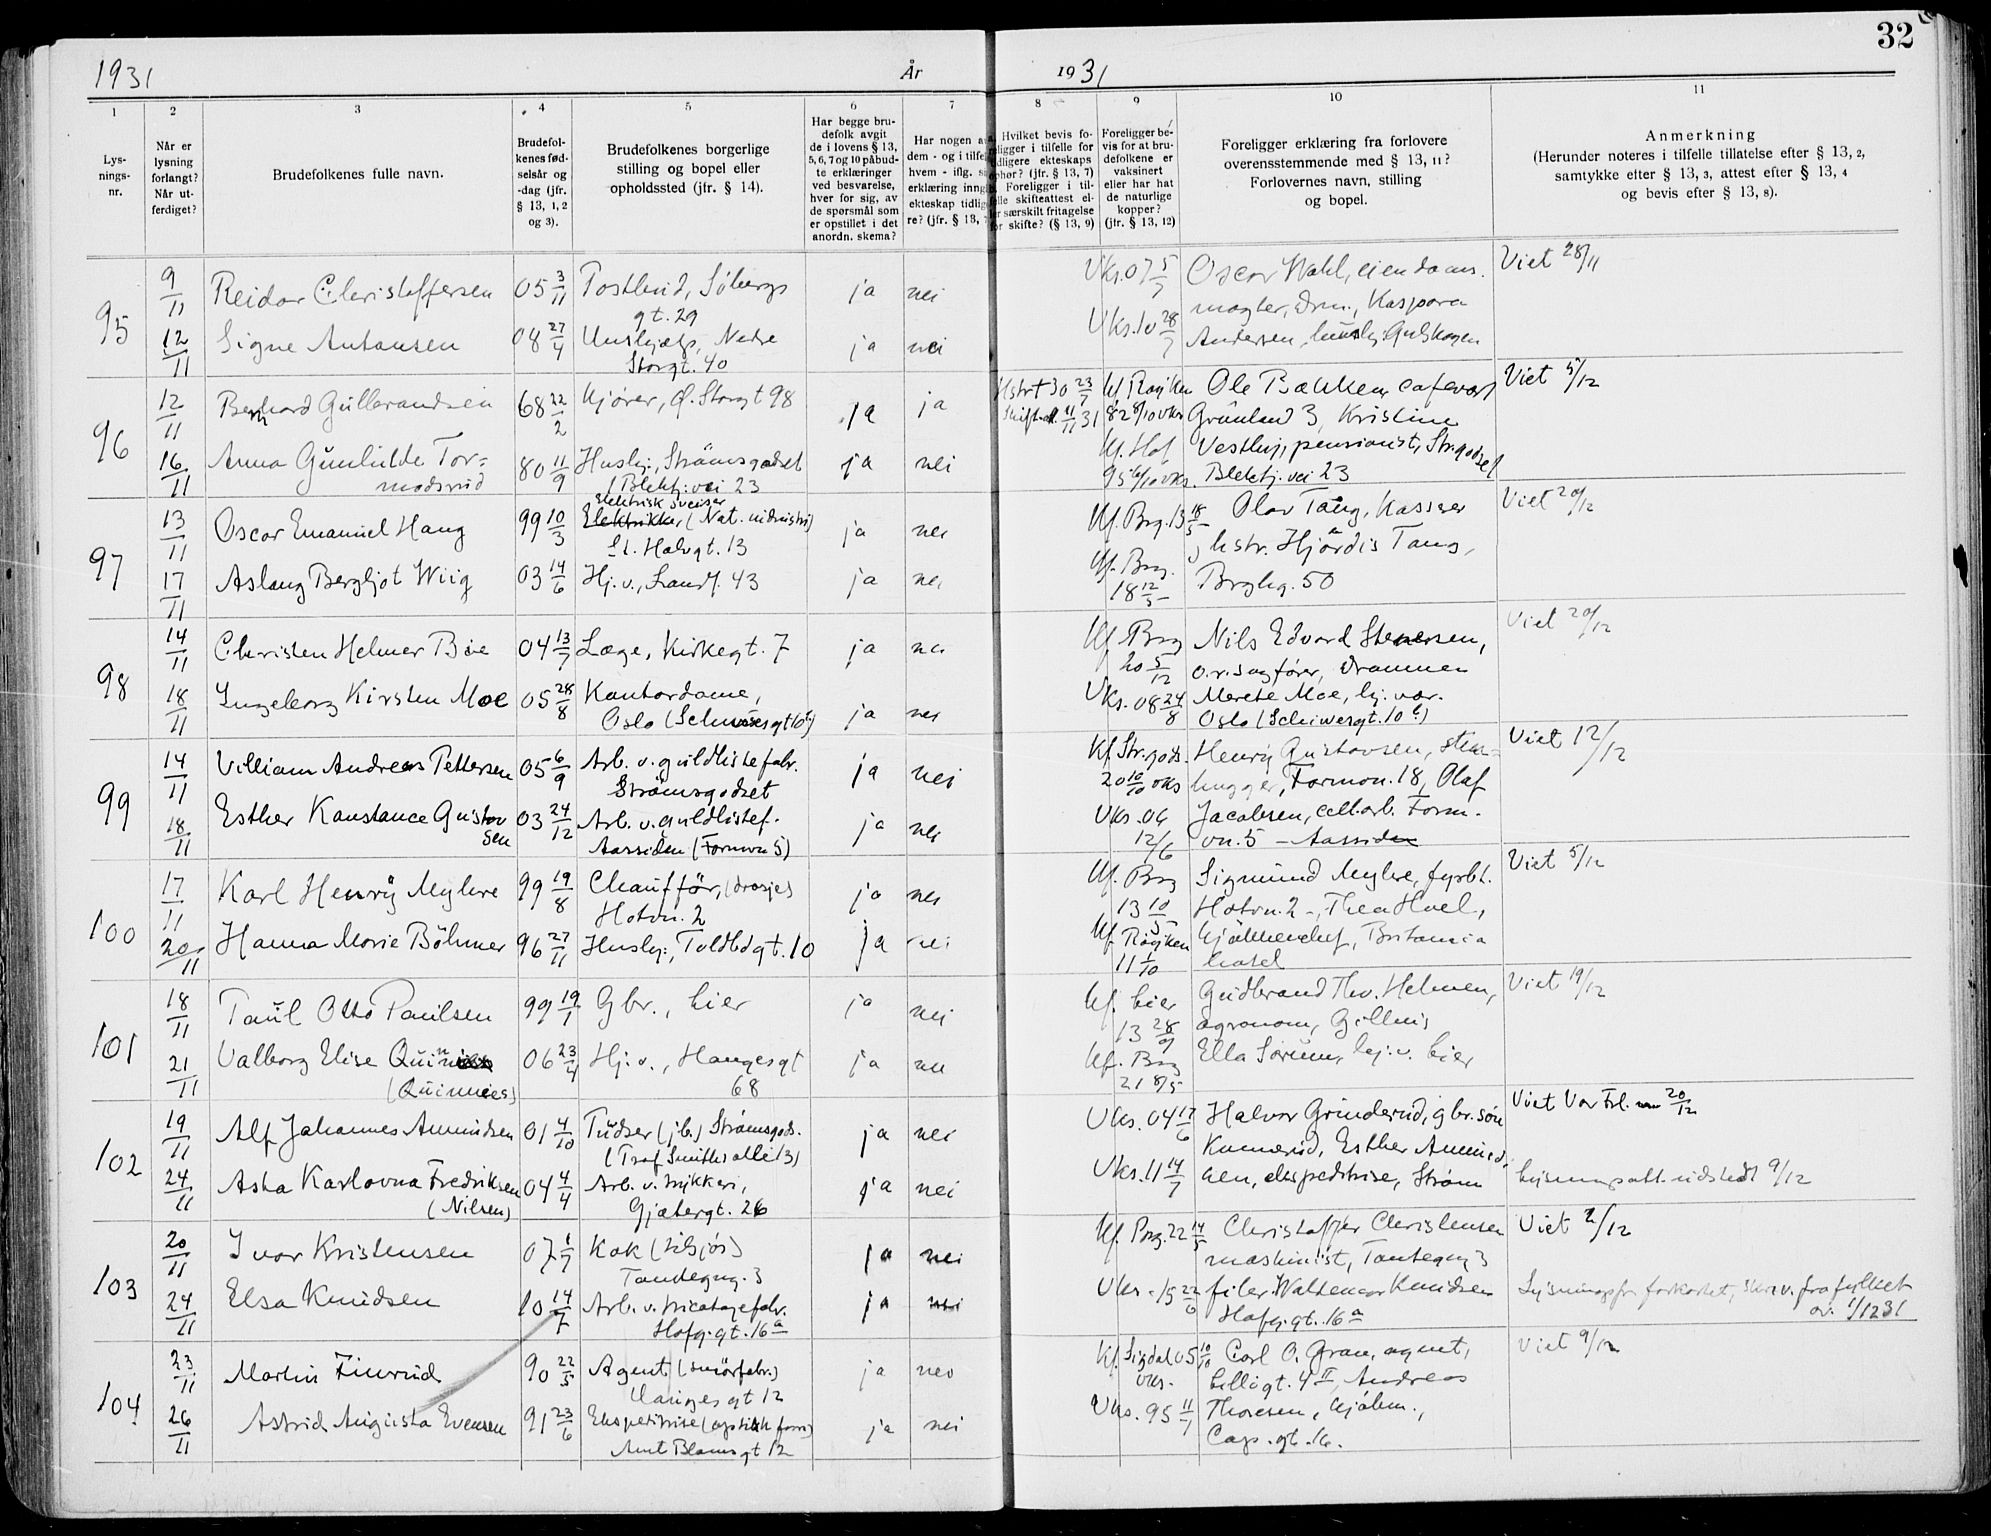 32
1931
År
1931
1
2
3
4
5
6
7
8
9
10
11
Lys-
nings-
nr.
Når er
lysning
forlangt?
Når ut-
ferdiget?
Brudefolkenes fulle navn.
Brudefol-
kenes fød-
selsår og
-dag (jfr.
§ 13, 1, 2
og 3).
Brudefolkenes borgerlige
stilling og bopel eller
opholdssted (jfr. § 14).
Har begge bru-
defolk avgit
de i lovens § 13,
5, 6, 7 og 10 påbud-
te erklæringer
ved besvarelse,
hver for sig, av
de spørsmål som
er opstillet i det
anordn. skema?
Har nogen a
dem - og i tilfe
hvem - iflg. s
erklæring inng
ekteskap tidlig
re? (jfr. § 13,
Hvilket bevis fo-
religger i tilfelle for
tidligere ekteskaps
ophør? (jfr. § 13, 7)
Foreligger i til-
felle skifteattest el-
ler særskilt fritagelse
for skifte? (§ 13, 9)
Foreligger be-
vis for at bru-
defolkene er
vaksinert
eller har hat
de naturlige
kopper?
(jfr. § 13, 12)
Foreligger erklæring fra forlovere
overensstemmende med § 13, 11?
Forlovernes navn, stilling
og bopel.
Anmerkning
(Herunder noteres i tilfelle tillatelse efter § 13, 2,
samtykke efter § 13, 3, attest efter § 13, 4
og bevis efter § 13, 8).
95
9/11 Reidar Christoffersen 05 3/11 Postbud, Söbergs ja nei Vks. 07 5/7 Oscar Wahl, eiendoms- Viet 28/11
gt. 29 mægler, Drm., Kaspara
12/11 Signe Antonsen 08 27/4 Hushjælp, Nedre ja nei Vks. 10 28/7 Andersen, husbj. Gulskogen
Storgt. 40
96
12/11 Bernhard Gulbrandsen 68 22/2 Kjører, Ø. Storgt 98 ja ja Hstr + 30 23/7 Kf. Røyken Ole Bakken, cafevært Viet 5/12
Skifteat. 11/11 31 82 8/10 vks Grønland 3, Kristine
16/11 Anna Gunhilde Tor= 80 11/9 Husbj., Strømsgodset ja nei Kf. Hof Vestby, pensionist, Str.godset
modsrud (Blektj. vei 23 95 vks. Blektj. vei 23
97
13/11 Oscar Emanuel Haug 99 10/3 Elektrisk sveiser ja nei Kf. Brg. 13 18/5 Olav Tang, kasserer Viet 20/12
Elektriker (Nat. industri)
St. Halvgt. 13 hstr. Hjørdis Tang,
17/11 Aslaug Bergljot Wiig 03 14/6 Hj. v., Landf. 43 ja nei Kf. Brg. 18 12/5 Brghg. 50
98
14/11 Christen Helmer Bøe 04 13/7 Læge, Kirkegt. 7 ja nei Kf. Brg 20 5/12 Nils Edvard Stenersen, Viet 20/12
o.r.sagfører, Drammen
18/11 Ingeborg Kirsten Moe 05 28/8 Kontordame, ja nei Vks. 08 24/8 Merete Moe, hj. vær.
Oslo (Schiwesgt 10 b) Oslo (Schiwesgt. 10 b)
99
14/11 Villiam Andreas Pettersen 05 6/9 Arb. v. guldlistefabr. ja nei Kf Str.gods. 20 10/10 vks Henry Gustavsen, sten- Viet 12/12
Strømsgodset hugger, Formon. 18, Olaf
18/11 Esther Konstance Gustav 03 24/12 Arb. v. guldlistef. ja nei Vks. 06 12/6 Jacobsen, cell.arb. Form-
sen Aassiden (Formon 5) vn. 5 – Aassiden
100
17/11 Karl Henry Myhre 99 19/8 Chauffør, (drosje) ja nei Kf. Brg 13 10/5 Sigmund Myhre, fyrbt. Viet 5/12
Hotvn. 2 Hotvn. 2 –, Thea Hoel,
20/11 Hanna Marie Böhmer 96 27/11 Husbj:, Toldbdgt. 10 ja nei Kf Røyken 11 1/10 kjøkkenchef, Britania
hotel
101
18/11 Paul Otto Paulsen 99 19/1 Gbr., Lier ja nei Kf. Lier 13 28/9 Gudbrand Thv. Helmen, Viet 19/12
agronom,
21/11 Valborg Elise 06 23/4 Hj. v., Haugesgt ja nei Kf. Brg 21 8/5 Ella Sørum, hj. v. Lier
68
102
19/11 Alf Johannes Amundsen 01 4/10 Pudser (jb.) Strømsgods. ja nei Vks. 04 17/6 Halvor Grinderud, gbr. søn Viet Vor Frl. 20/12
(Prof Smiths alle 13) Esther Amund-
24/11 Asta Karlovna Fredriksen 04 4/4 Arb. v. trykkeri, ja nei Vks. 11 14/7 sen, ekspeditrise, Strøm Lysningsatt. utstedt 9/12
(Nilsen) Gjetergt. 26
103
20/11 Ivar Kristensen 07 1/7 Kok (tilsjøs) ja nei Kf. Brg. 22 14/5 Christoffer Christensen Viet 2/12
Tandegng. 3 maskinist, Tandegng 3
24/11 Elsa Knudsen 10 14/7 Arb. v. tricotagefabr. ja nei Vks. 15 22/6 filer. Waldemar Knudsen Lysningsfr. forkortet, skriv. fra fylket
Hofg. gt. 16a Hofg. gt. 16a av. 1/12 31
104
23/11 Martin Finrud 90 22/5 Agent (smørfabr.) ja nei Kf. Sigdal 05 10/10 vks. Carl O. Gran, agent, Viet 9/12
Haugesgt 12 Lellogt. 4 II, Andreas
26/11 Astrid Augusta Evensen 91 23/6 Ekspeditrise (optisk forr.) ja nei Vks. 95 11/7 Thoresen, kjøbm.,
Amt Blomsgt 12 Cap. gt. 16.